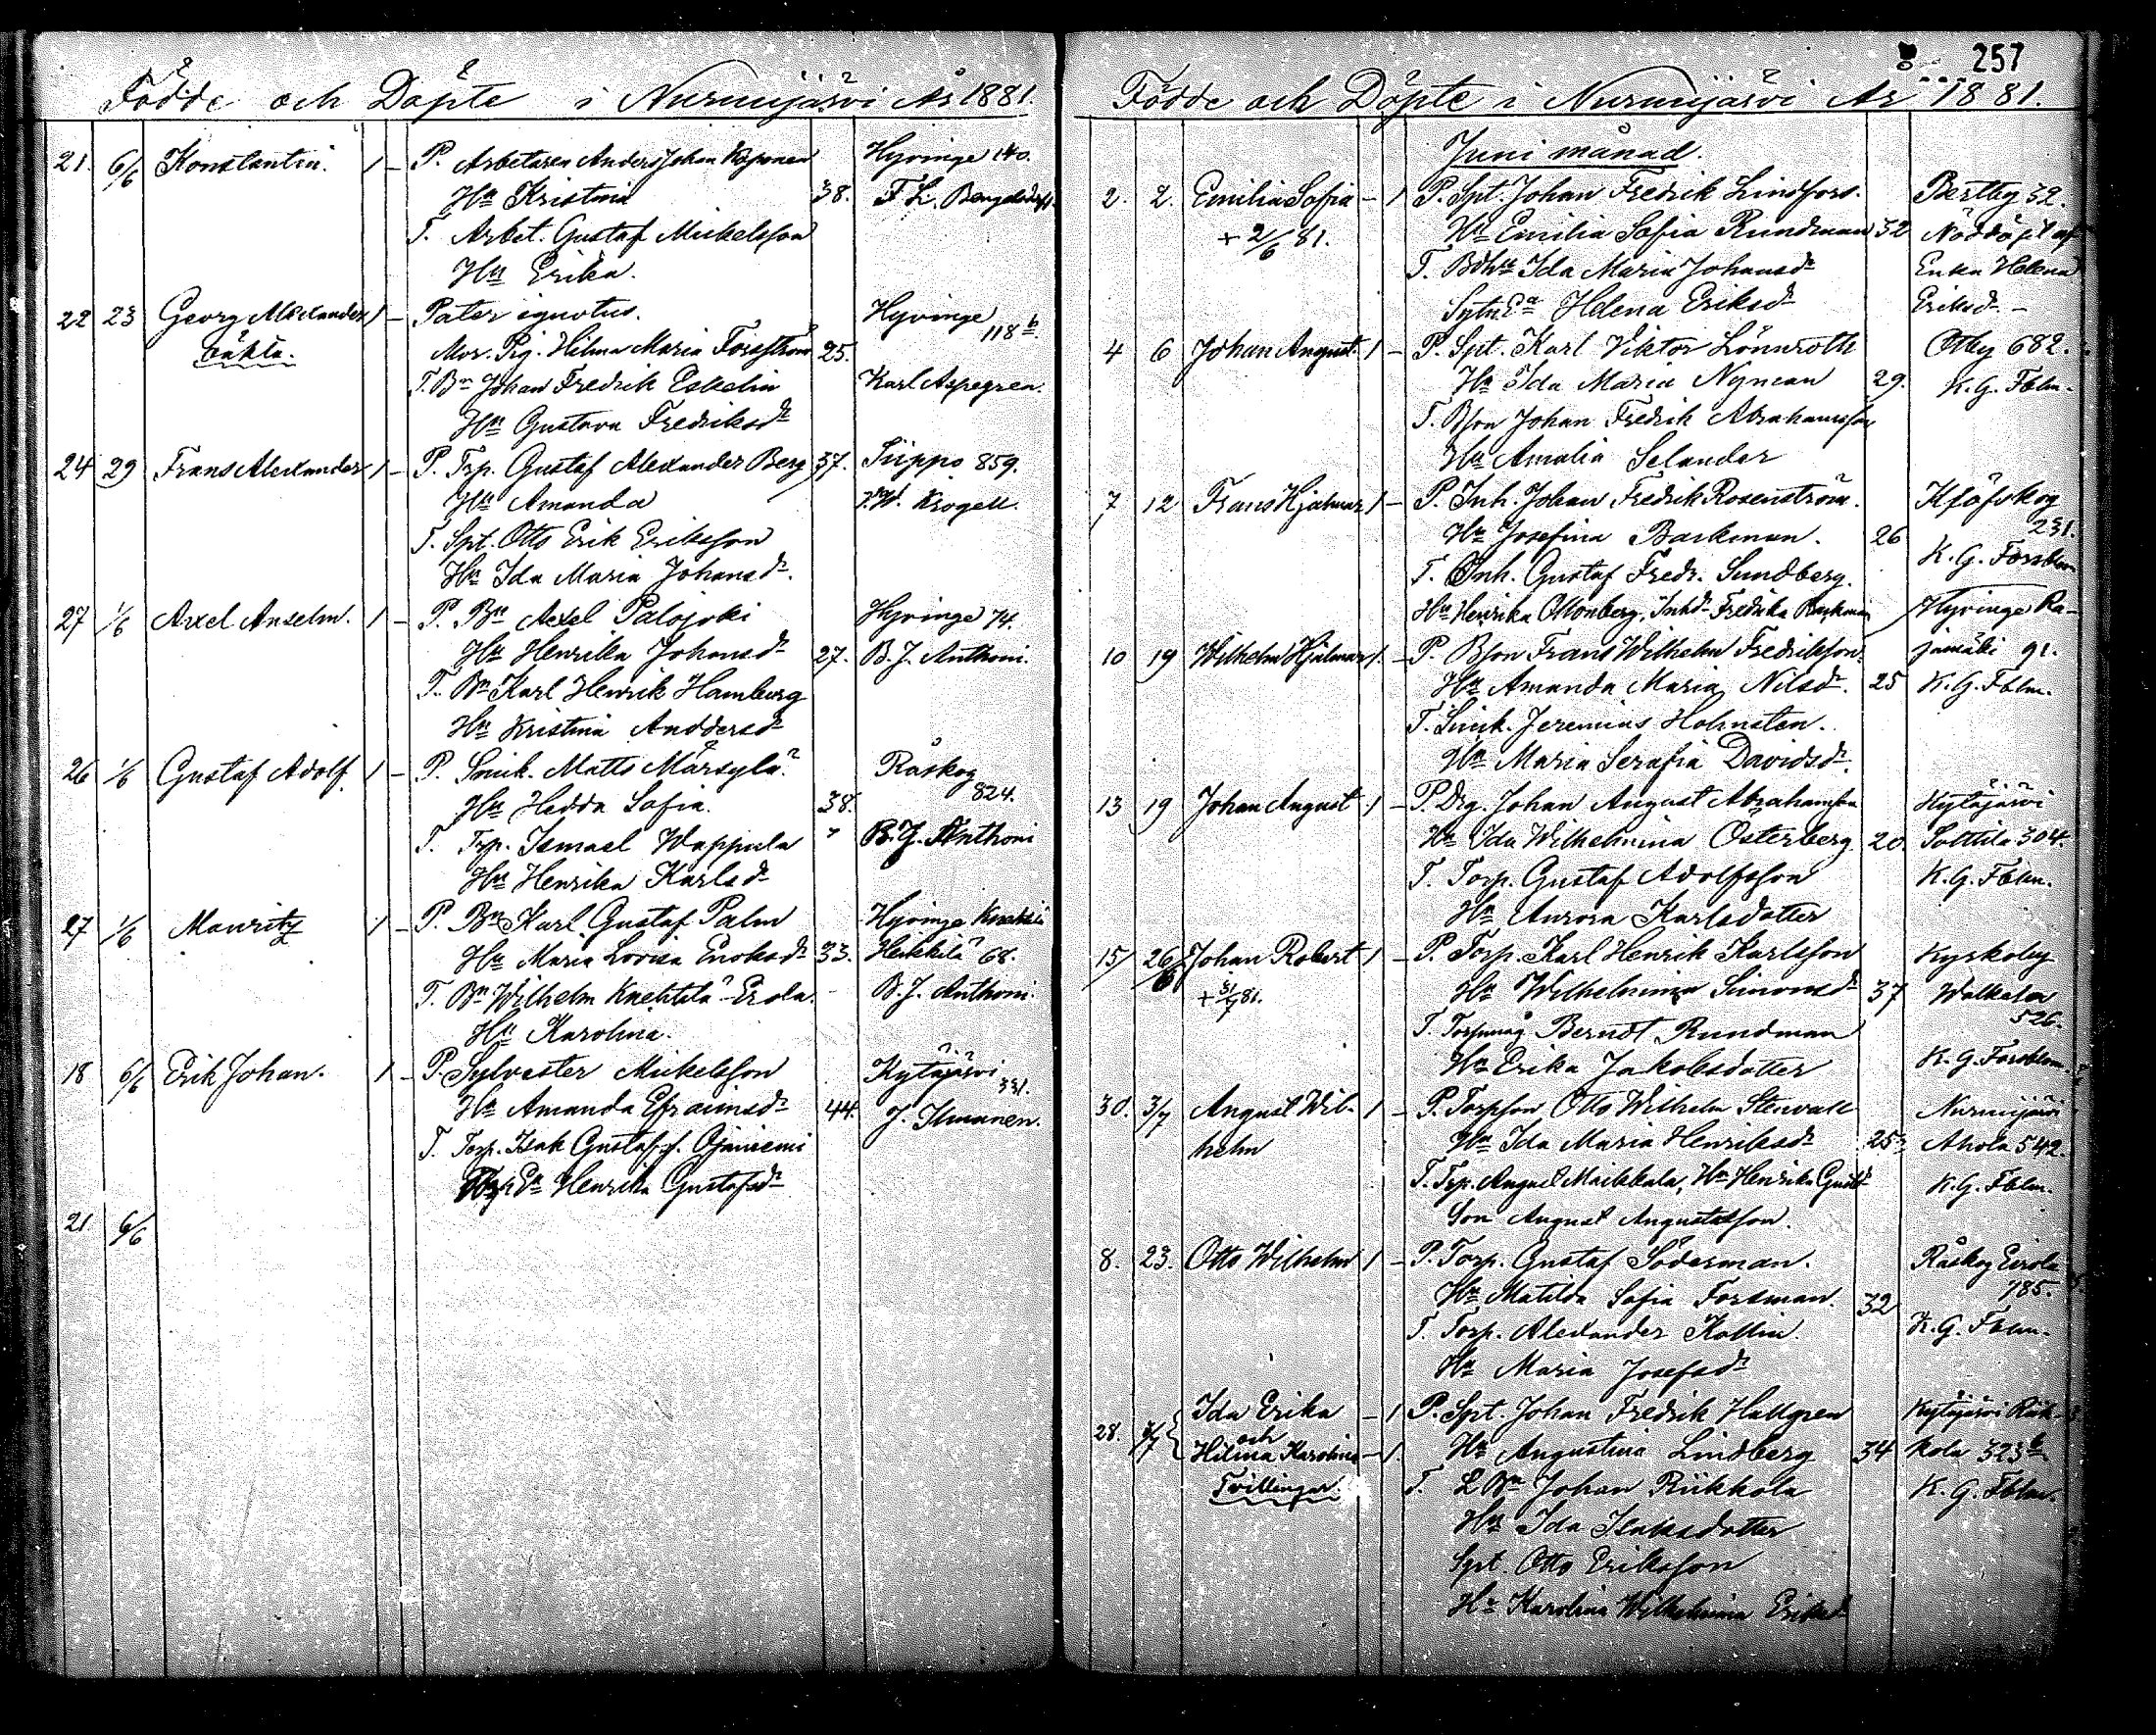 Födde och Döpte i Nurmijärvi År 1881.
21. 6/6 Konstantin. 1 - P. Arbetaren Anders Johan Koponen Hyvinge 140.
Hu Kristina 38. F. L.
T. Arbet. Gustaf Mickelsson
Hu Erika.
22 23 Georg Alexander 1 - Pater ignotus. Hyvinge 118 b.
oäkta. Mor. Pig. Hilma Maria Forsström 25.
T. Bn Johan Fredrik Eskelin Karl Aspegren.
Hu Gustava Fredriksdr
24 29 Frans Alexander 1 - P. Trp. Gustaf Alexander Berg 37. Siippo 859.
Hu Amanda Krogell.
T. Spt. Otto Erik Eriksson
Hu Ida Maria Johansdr.
27 1/6 Axel Anselm. 1 - P. Bn Axel Palojoki Hyvinge 74.
Hu Henrika Johansdr 27. B. J. Anthoni.
T. Bn Karl Henrik Hamberg
Hu Kristina Anddersdr
26 1/6 Gustaf Adolf. 1 - P. Smik. Matts Mårsylä? Råskog 824.
Hu Hedda Sofia. 38.
T. Trp. Ismael Wappula " B. J. Anthoni
Hu Henrika Karlsdr
27 1/6 Mauritz 1 - P. Bn Karl Gustaf Palm Hyvinge
Hu Maria Lovisa Enoksdr 33. Heikkilä 68.
T. Bn Wilhelm Knehtilä-Erola. B. J. Anthoni.
Hu Karolina.
18 6/6 Erik Johan. 1 - P. Sylvester Mickelsson Kytäjärvi 331.
Hu Amanda Efraimsdr 44. J. Ilmanen.
T. Torp. Isak Gustafs. Ojaniemi
Henrika Gustafsdr
21 6/6
257
Födde och Döpte i Nurmijärvi År 1881.
Juni månad.
2. 2. Emilia Sofia - 1 P. Spt. Johan Fredrik Lindfors. Bertby 32.
+ 2/6 81. Hu Emilia Sofia Rundman 32 Nöddöpt af
T. Bdhu Ida Maria Johansdr Enka Helena
Helena Eriksdr Eriksdr. -
4 6 Johan August 1 - P. Spt. Karl Viktor Lönnroth Otby 682.
Hu Ida Maria Nyman 29. K. G. Fblm.
T. Bson Johan Fredrik Abrahamsson
Hu Amalia Selander
7 12 Frans Hjalmar 1 - P. Inh. Johan Fredrik Rosenström. Klöfskog
Hu Josefina Backman. 26 231.
T. Inh. Gustaf Fredr. Sundberg. K. G. Forsblom
Hu Henrika Ottonberg, Inhdr Fredrika Backman Hyvinge Ra-
10 19 Wilhelm Hjalmar 1. - P. Bson Frans Wilhelm Fredriksson. jamäki 91.
Hu Amanda Maria Nilsdr. 25 K. G. Fblm.
T. Smik. Jeremias Holmsten.
Hu Maria Serafia Davidsdr.
13 19 Johan August 1 - P. Drg. Johan August Abrahamsson Kytäjärvi
Hu Ida Wilhelmina Österberg 20. Solttila 304.
T. Torp. Gustaf Adolfsson K. G. Fblm.
Hu Aurora Karlsdotter
15 26/6 Johan Robert 1 - P. Torp. Karl Henrik Karlsson Kyrkoby
+ 31/7 81. Hu Wilhelmina Simonsdr 37 Walkela
T. Torpmåg Berndt Rundman 526.
Hu Erika Jakobsdotter K. G. Forsblom.
30. 3/7 August Wil- 1 - P. Torpson Otto Wilhelm Stenvall Nurmijärvi
helm Hu Ida Maria Henriksdr 25 Ahola 542.
T. Trp. August Maikkala, Hu Henrika Gustdr K. G. Fblm.
Son August Augustsson.
8. 23. Otto Wilhelm 1 - P. Torp. Gustaf Söderman. Råskog Eirola
Hu Matilda Sofia Forsman. 32 785.
T. Torp. Alexander Kollin. K. G. Fblm.
Hu Maria Josefsdr
28. 3/7 Ida Erika - 1 P. Spt. Johan Fredrik Hallgren Kytäjärvi Riik-
och Hilma Karolina - 1. Hu Augustina Lindberg 34 kola 323 b
Tvillingar. T. L Bn Johan Riikkola K. G. Fblm.
Hu Ida Isaksdotter
Spt. Otto Eriksson
Hu Karolina Wilhelmina Eriksdr